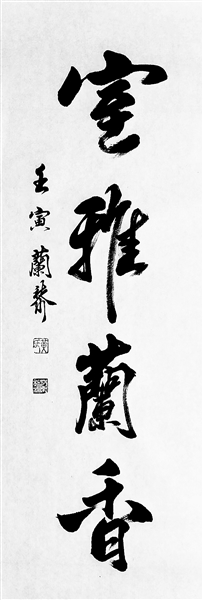 室雅蘭香
壬寅蘭